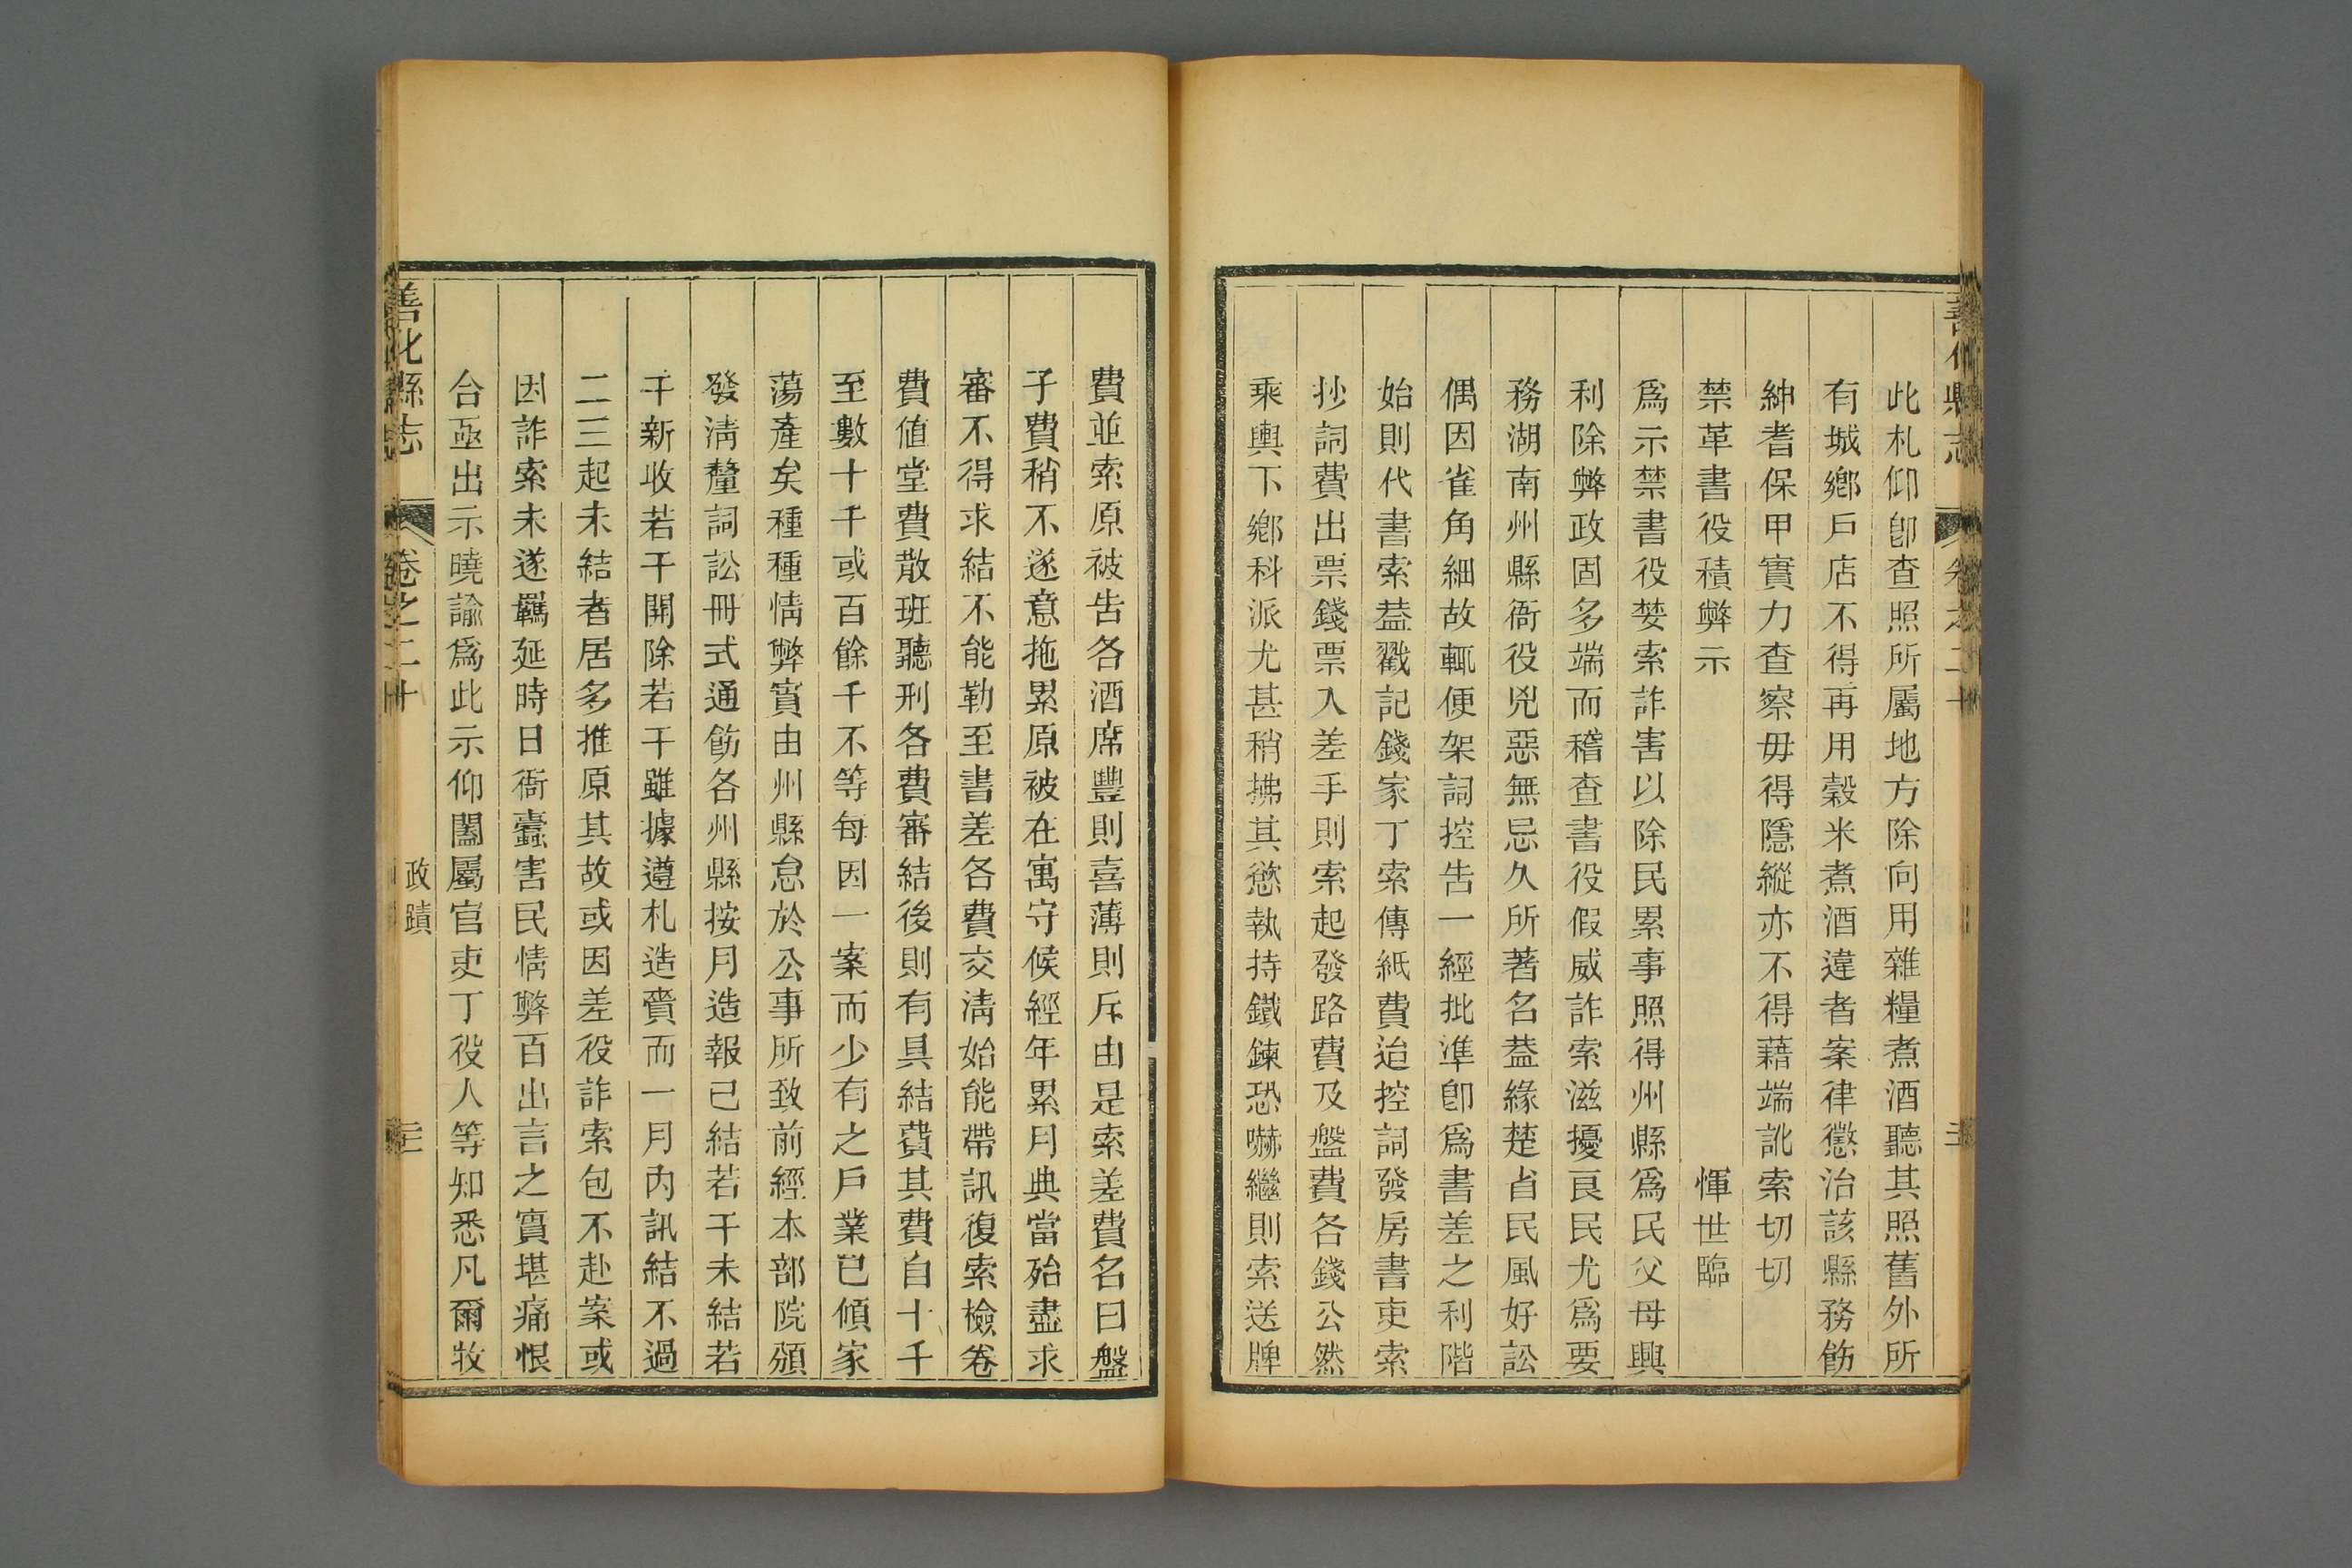 此札仰卽查照所屬地方除向用雜糧煮酒聽其照舊外所
有城鄉戶店不得再用穀米煮酒違者案律懲治該縣務飭
紳耆保甲實力查察毋得隱縱亦不得藉端訛索切切
禁革書役積弊示 惲世臨
爲示禁書役婪索詐害以除民累事照得州縣爲民父母興
利除弊政固多端而稽查書役假威詐索滋擾良民尤爲要
務湖南州縣衙役兇惡無忌久所著名葢緣楚省民風好訟
偶因雀角細故輒便架詞控吿一經批準卽爲書差之利階
始則代書索葢戳記錢家丁索傳紙費迨控詞發房書吏索
抄詞費出票錢票入差手則索起發路費及盤費各錢公然
乘輿下鄉科派尤甚稍拂其慾執持鐵鍊恐嚇繼則索送牌
費並索原被吿各酒席豐則喜薄則斥由是索差費名曰盤
子費稍不遂意拖累原被在寓守候經年累月典當殆盡求
審不得求結不能勒至書差各費交淸始能帶訊復索檢卷
費値堂費散班聽刑各費審結後則有具結費其費自十千
至數十千或百餘千不等每因一案而少有之戶業已傾家
蕩產矣種種情弊實由州縣怠於公事所致前經本部院頒
發淸釐詞訟冊式通飭各州縣按月造報已結若干未結若
干新收若干開除若干雖據遵札造賫而一月內訊結不過
二三起未結者居多推原其故或因差役詐索包不赴案或
因詐索未遂羈延時日衙蠹害民情弊百出言之實堪痛恨
合亟出示曉諭爲此示仰闔屬官吏丁役人等知悉凡爾牧
善化縣志 卷之二十 政蹟